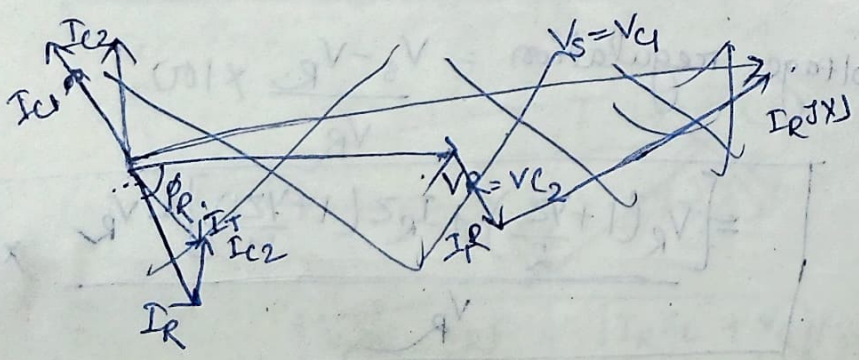 IC2
VS=VC1
IC1
IRJXJ
ϕR
VR=VC2
IT
IC2
IR
IR